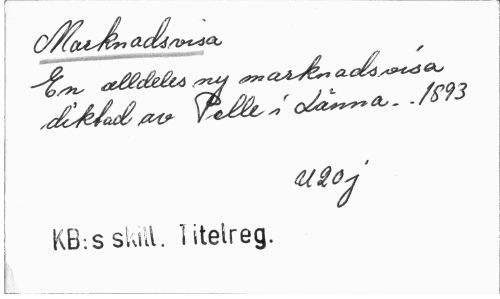 Marknadsvisa
En alldeles ny marknadsvisa
diktad av Pelle i Länna. . 1893
U20j
KB:s skill. Titelreg.